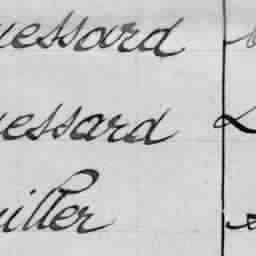 uessard
uessard
uiller